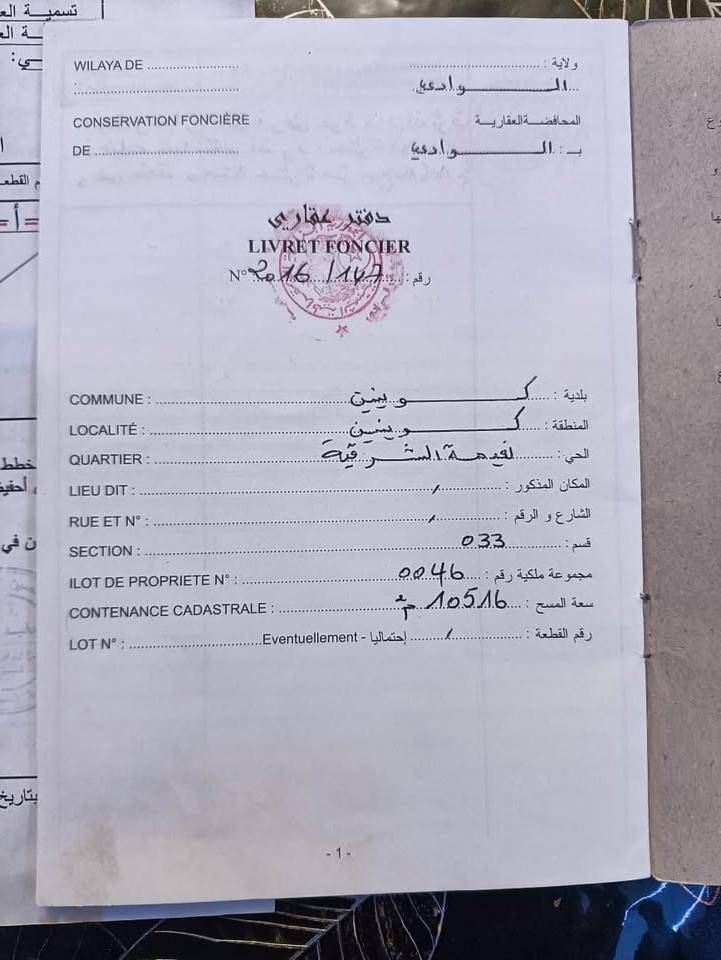 WILAYA DE .......................... ولاية :
الــــــــوادي
CONSERVATION FONCIÈRE المحافضة العقارية
DE .......................... بـ : الــــــــوادي
دفتر عقاري
LIVRET FONCIER
N° 2016/147 رقم :
COMMUNE : كــــــــوينين بلدية :
LOCALITÉ : كــــــــوينين المنطقة :
QUARTIER : لغيمة الشرقية الحي :
LIEU DIT : / المكان المذكور :
RUE ET N° : / الشارع و الرقم :
SECTION : 033 قسم :
ILOT DE PROPRIETE N° : 0046 مجموعة ملكية رقم :
CONTENANCE CADASTRALE : 10516 م² سعة المسح :
LOT N° : Eventuellement - إحتماليا / رقم القطعة :
- 1 -